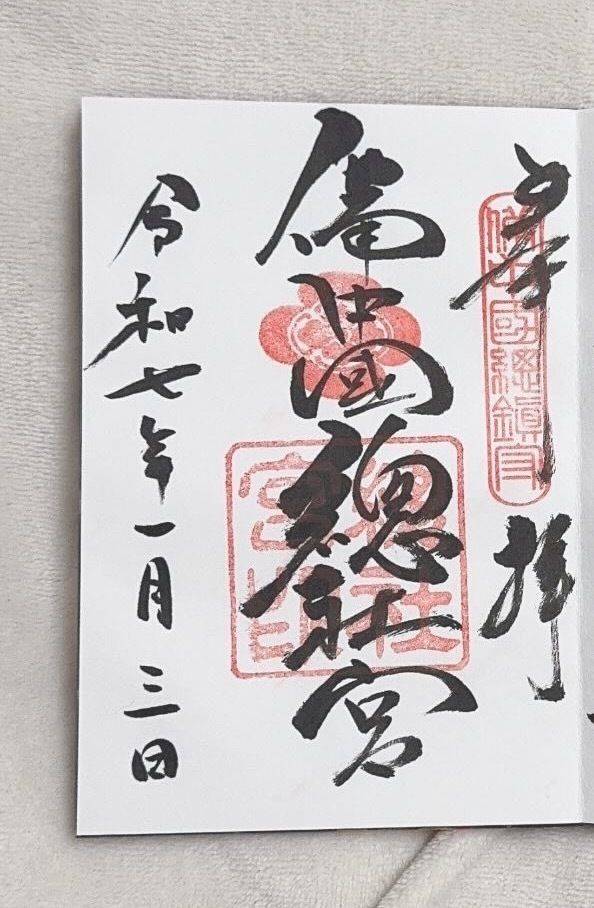 奉拝
備中國総鎮守
備中國總社宮
總社宮印
令和七年一月三日